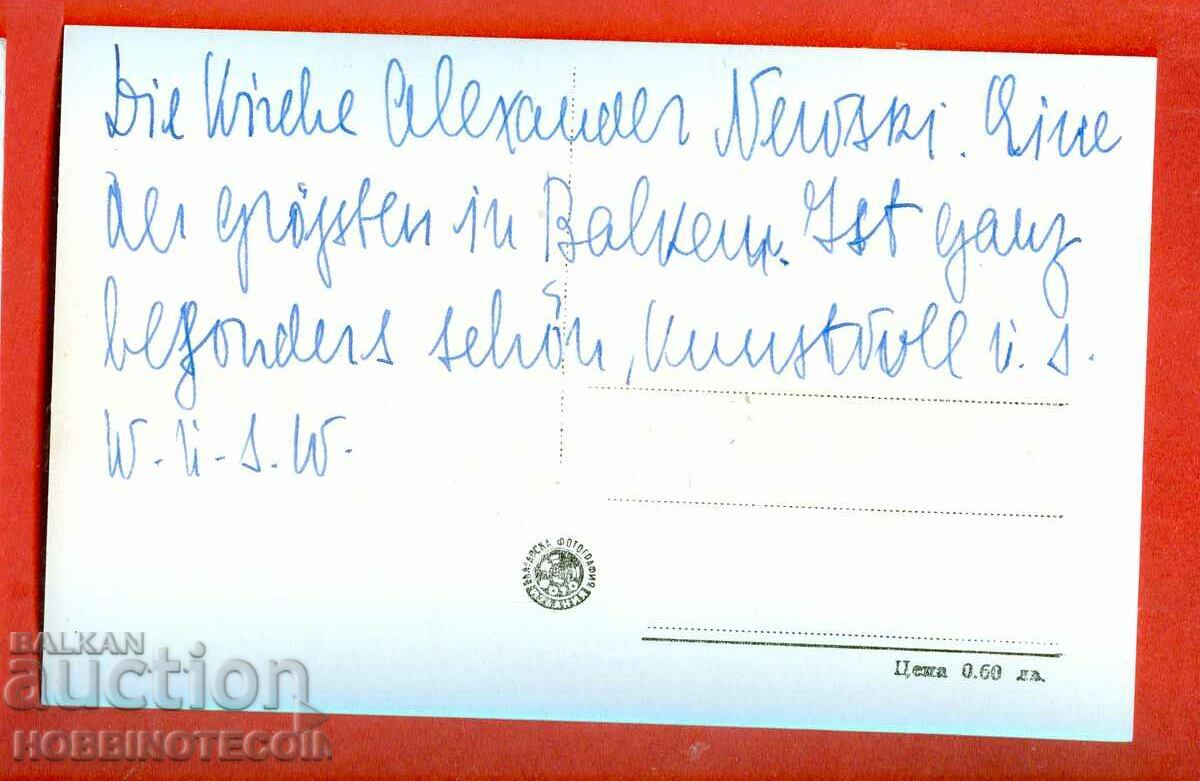 Die Kirche Alexander Newski. Eine
der größten in Balken. Ist ganz
besonders schön, Kunstvoll u. s.
w. u. s. w.
БЪЛГАРСКА ФОТОГРАФИЯ
Цена 0.60 лв.
BALKAN
auction
HOBBINOTECOIN